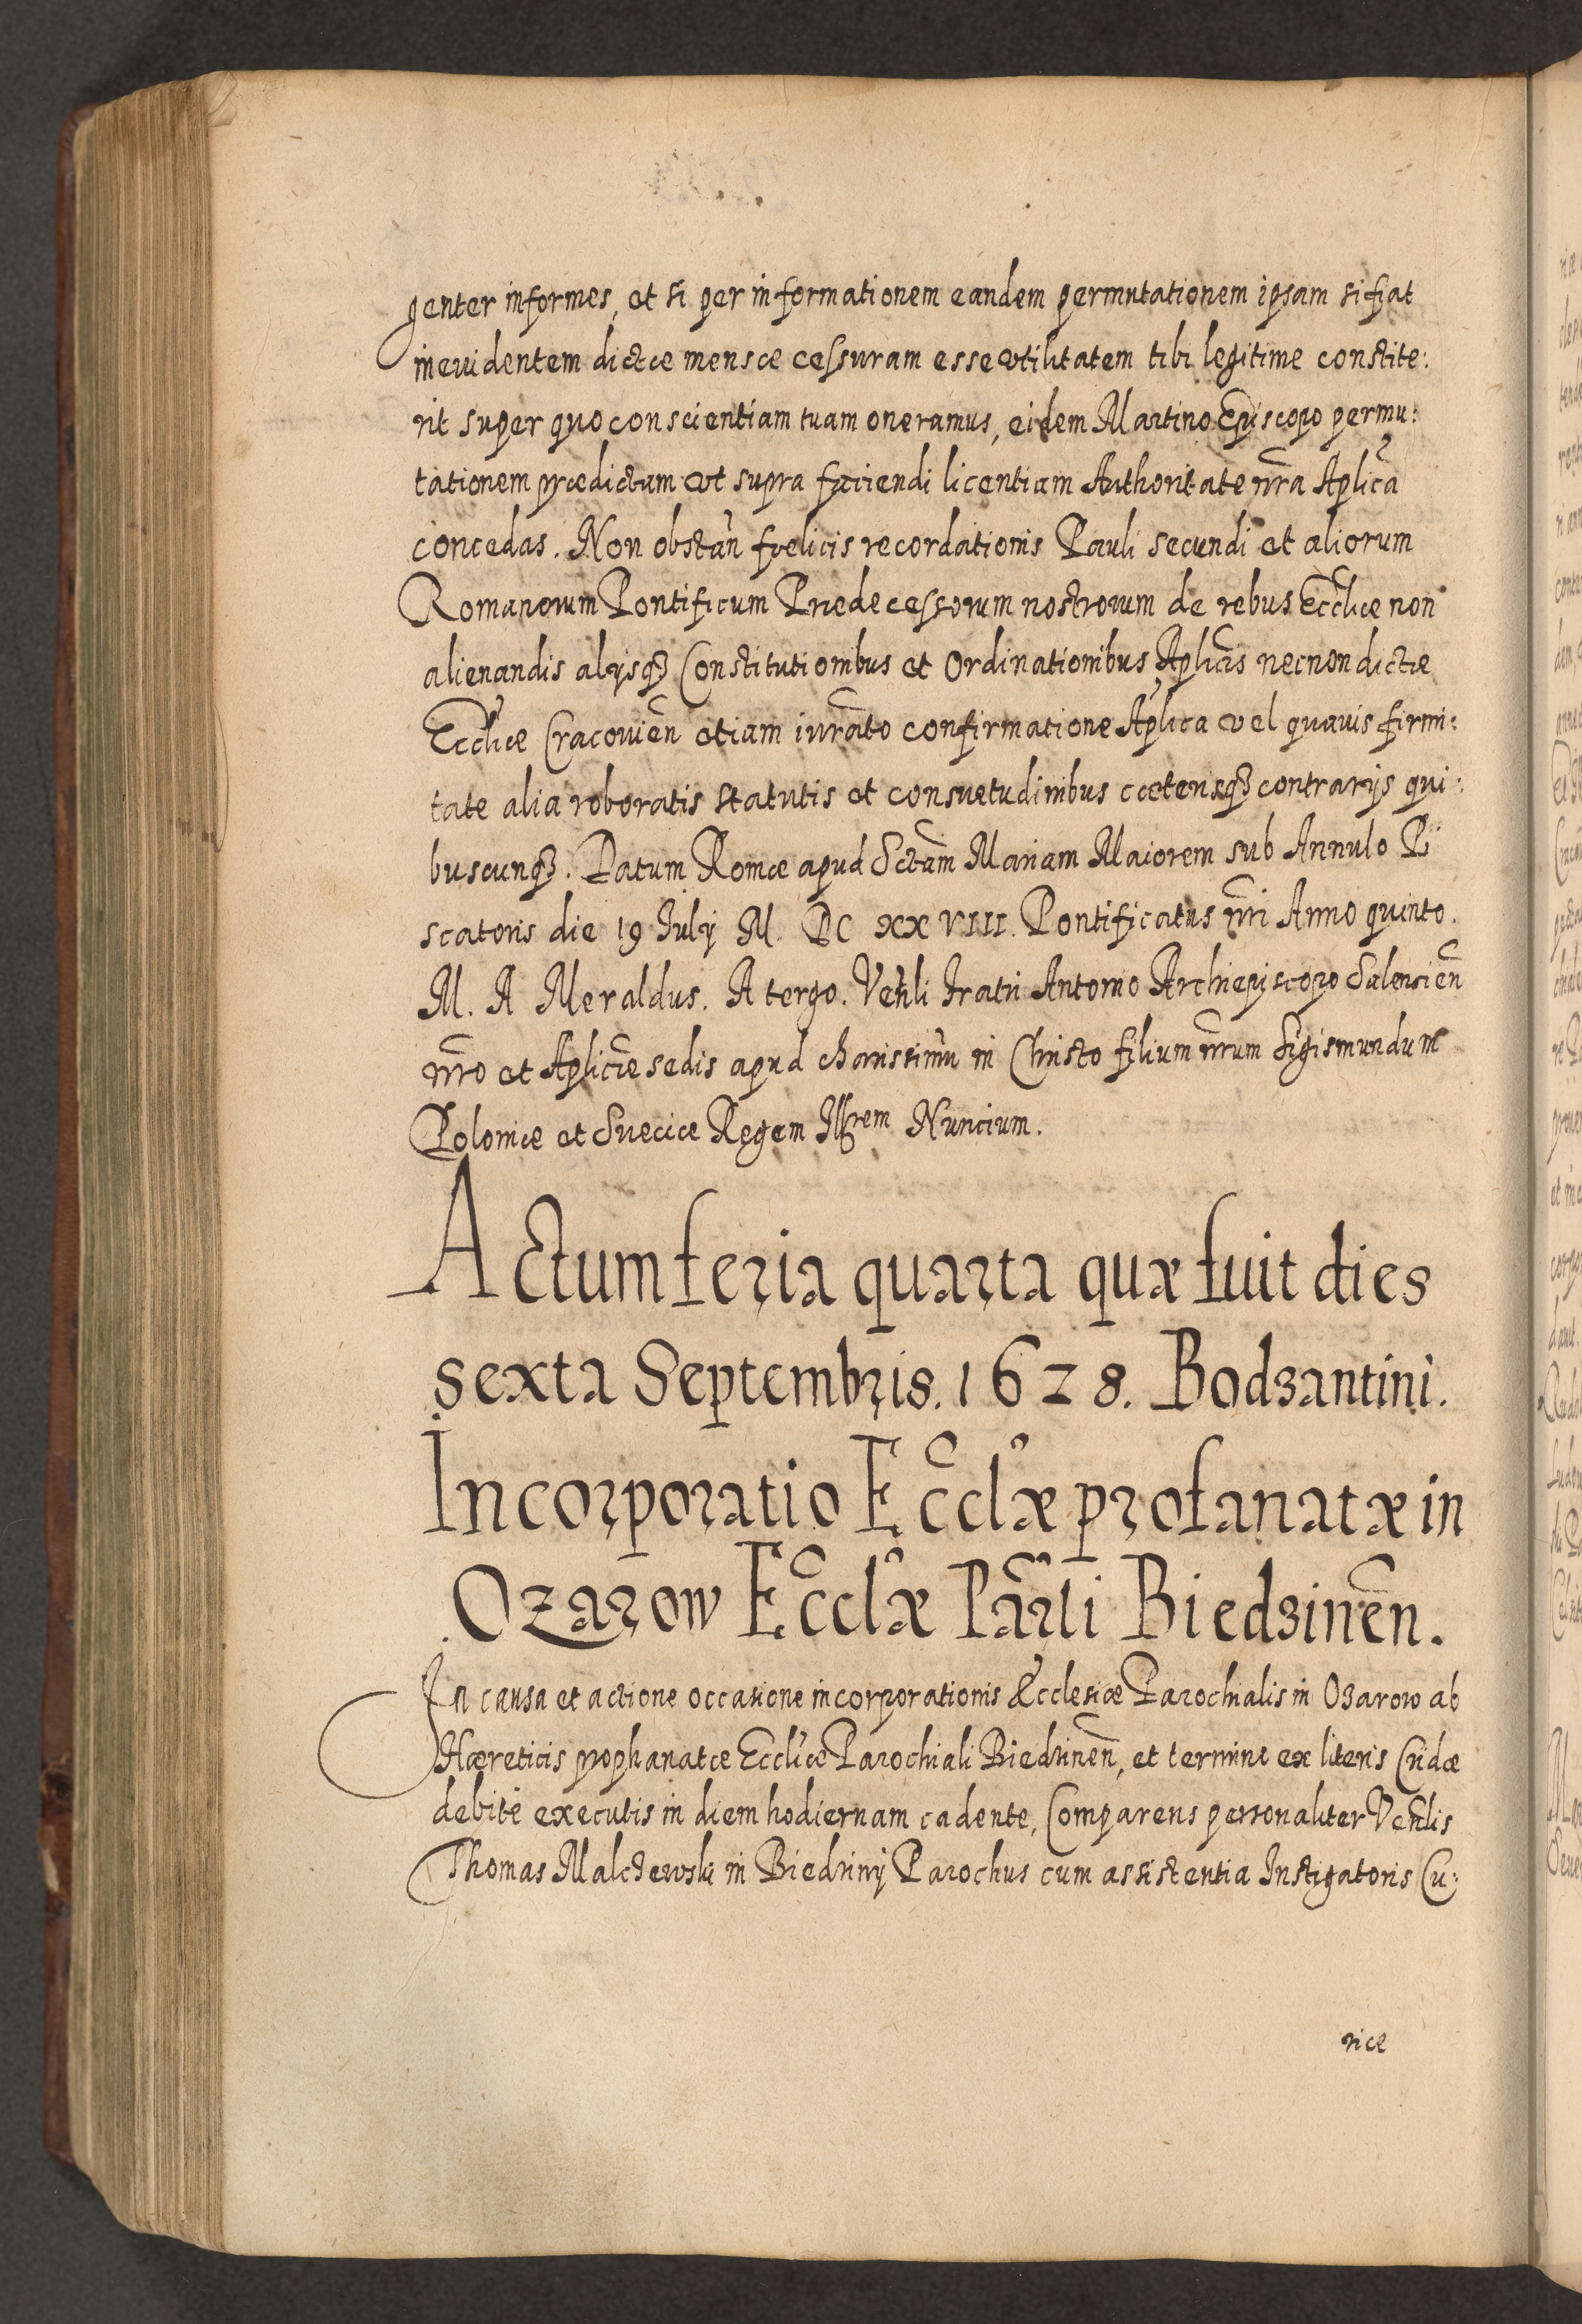 genter informes, et si per informationem eandem permutationem ipsam si fiat
in evidentem dictæ mensæ cessuram esse vtilitatem tibi legitime constite:
rit super quo conscientiam tuam oneramus, eidem Martino Episcopo permu:
tationem prædictam vt supra faciendi licentiam Authoritate nr̃a Aplicã
concedas. Non obstañ fælicis recordationis Pauli secundi et aliorum
Romanorum Pontificum Prædecessorum nostrorum de rebus Eccl̃iæ non
alienandis alijsq₃ Constitutionibus et Ordinationibus Aplicĩs necnon dictæ
Eccl̃iæ Cracovieñ etiam iurãto confirmatione Aplica vel quavis firmi:
tate alia roboratis statutis et consuetudinibus cæterisq₃ contrarijs qui:
buscunq₃. Datum Romæ apud Sctãm Mariam Maiorem sub Annulo Pi
scatoris die 19 Julij M. DC XXVIII. Pontificatus nr̃i Anno quinto.
M. A Meraldus. A tergo. Veñli Fratri Antonio Archiepiscopo Seleucieñ
nr̃o et Aplicæ̃ sedis apud charissimũ in Christo filium nr̃um Sigismundum
Poloniæ et Sueciæ Regem Illrem Nuncium.
Actum feria quarta quæ fuit dies
sexta Septembris. 1628. Bodzantini.
Incorporatio Eccl̃æ profanatæ in
Ozarow Eccl̃æ Parl̃i Biedzineñ.
In causa et actione occasione incorporationis Ecclesiæ Parochialis in Ozarow ab
Hæreticis prophanatæ Eccl̃iæ Parochiali Biedrineñ, et termino ex literis Cridæ
debite executis in diem hodiernam cadente, Comparens personaliter Veñlis
Thomas Malchewski in Biedriny Parochus cum assistentia Instigatoris Cu:
riæ